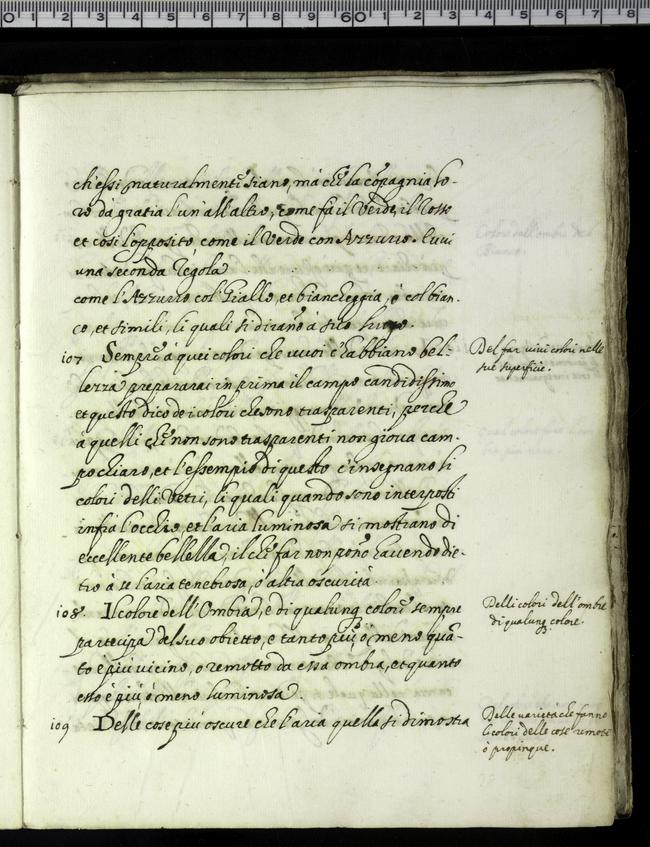 ch'essi naturalmente siano, mà che la cōpagnia lo-
ro dà gratia l'un' all'altro, come fà il Verde, il Rosso
et così l'opposito come il Verde con Azzurro. Euui
una seconda régola
come l'Azzurro col' Giallo, et biancheggia, ò col bian-
co, et simili, li quali si dirāno à suo luogo.
107 Sempre à quei colori che vuoi c'habbiano bel-
lezza preparerai in prima il campo candidissimo
et questo dico de i colori che sono trasparenti, perche
à quelli che non sono trasparenti non gioua cam-
po chiaro, et l'essempio di questo c'insegnano li
colori delli Vetri, li quali quando sono interposti
infrà l'occhio, et l'aria luminosa si mostrano di
eccellente bellella, il che far non ponō hauendo die-
tro à se l'aria tenebrosa, ò altra oscurità
Del far vivi colori nelle
sue superficie.
108. Il colore dell'Ombra, e di qualunq colore sempre
partecipa del suo obietto, e tanto più, ò meno quā-
to è più vicino, o remotto da essa ombra, et quanto
esso è più, ò meno luminosa.
Delli colori dell'ombre
di qualunq colore.
109 Delle cose più oscure che l'aria quella si dimostra
Delle varietà che fanno
li colori delle cose remote
ò propinque.